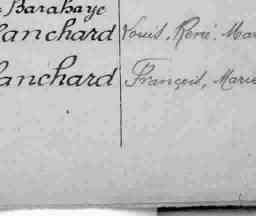 Barahaye
lanchard Louis, René, Mar
lanchard François, Marie